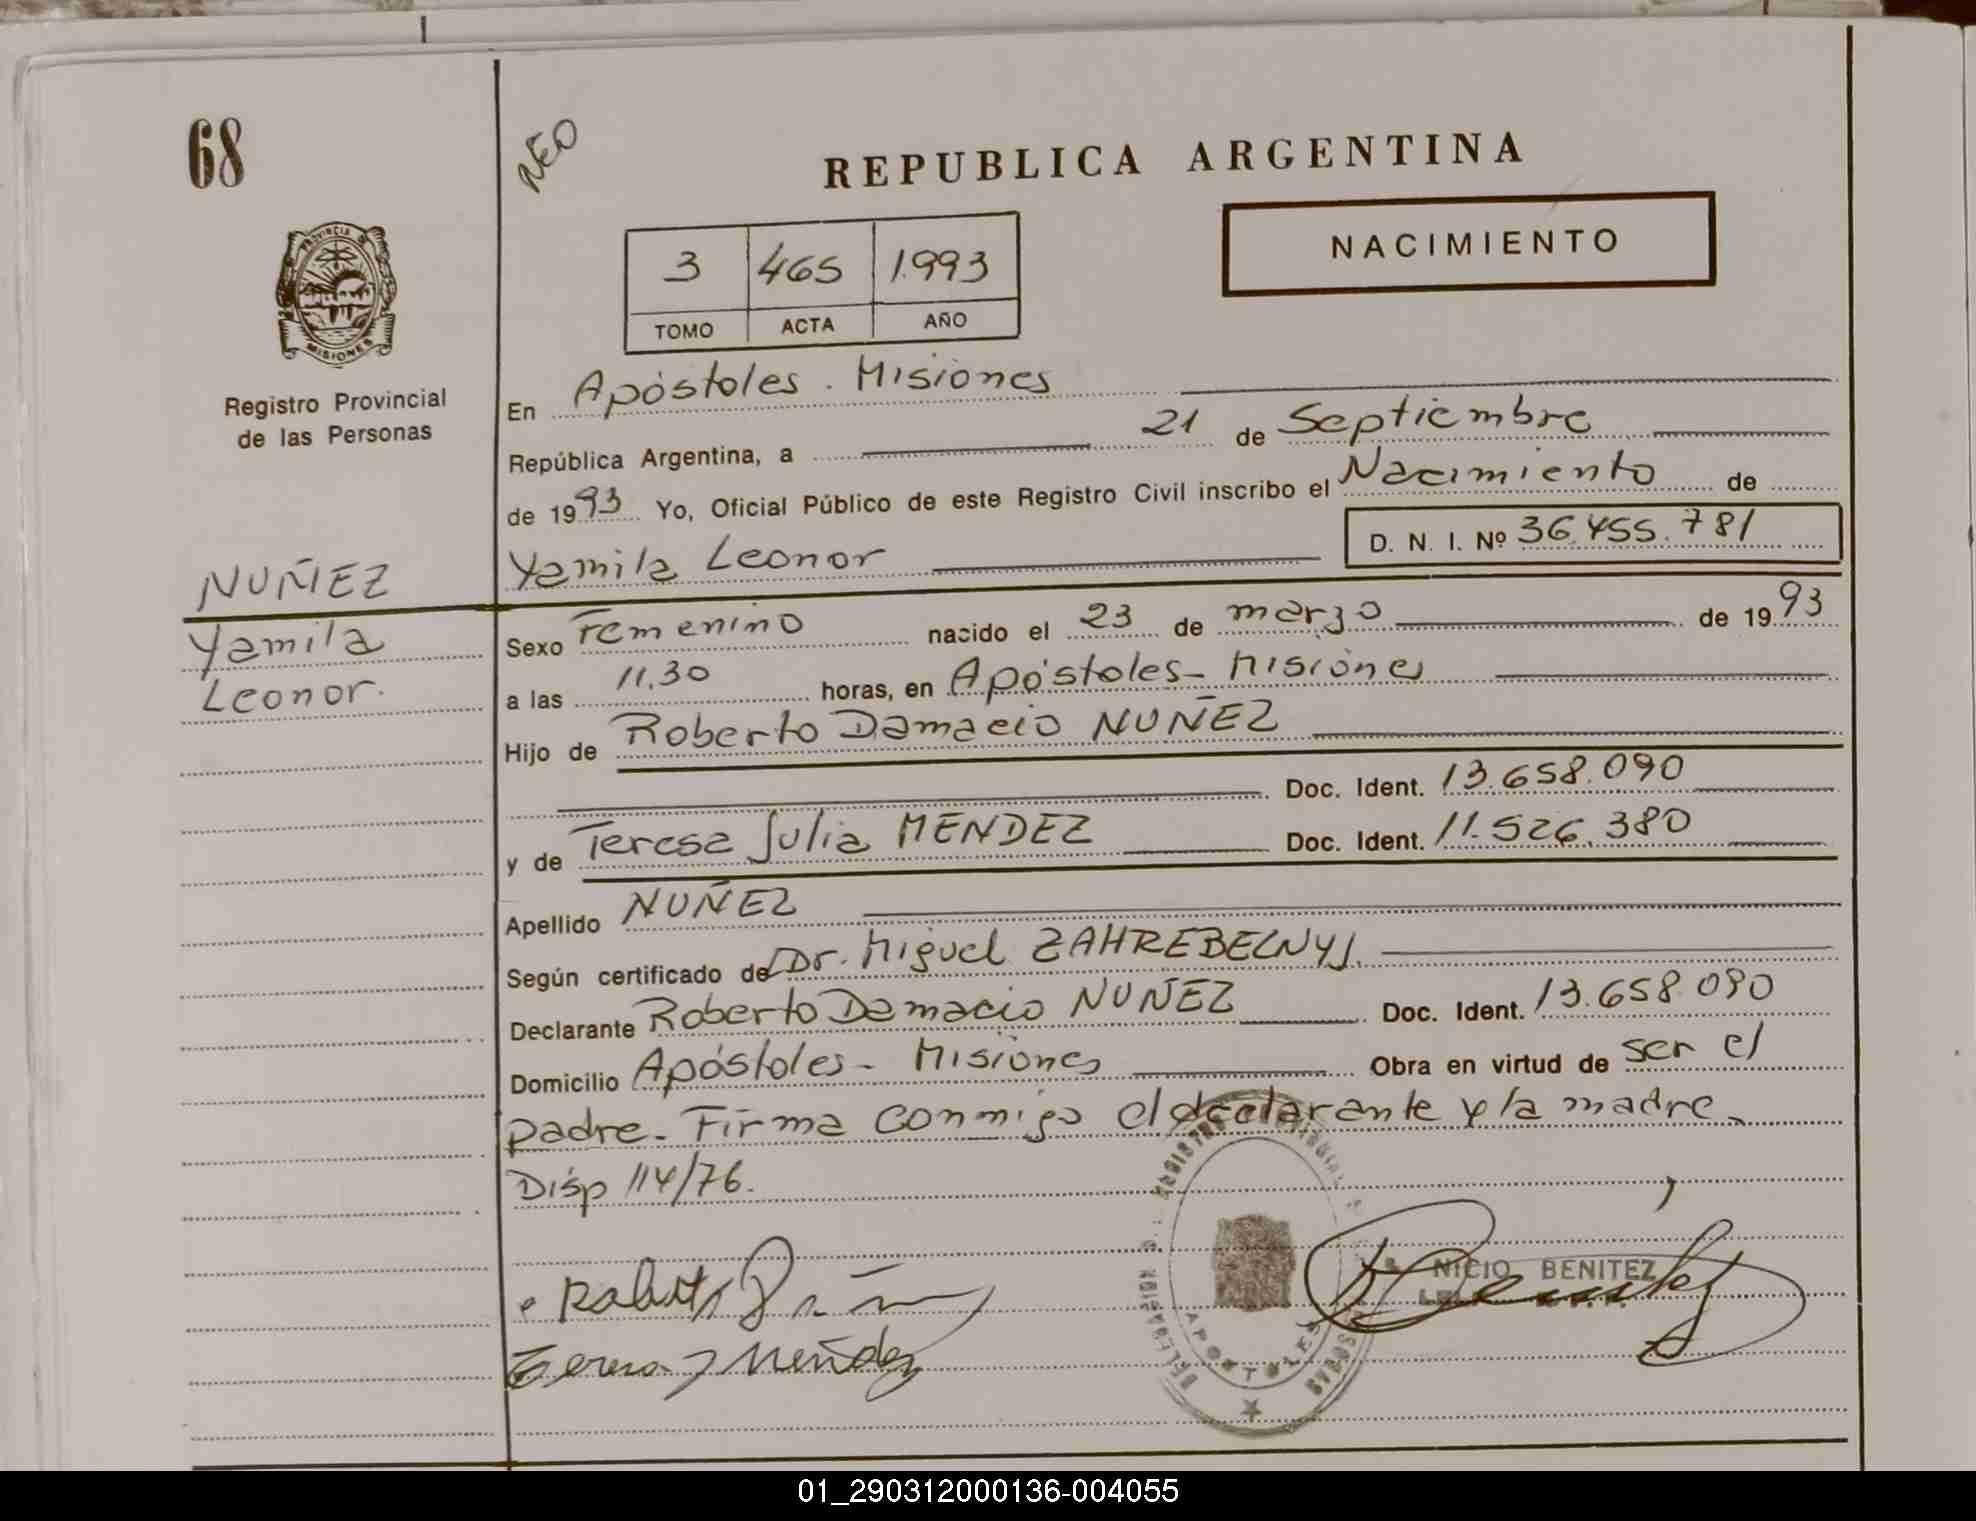 68
NEO
REPUBLICA ARGENTINA
NACIMIENTO
3 465 1.993
TOMO ACTA AÑO
PROVINCIA DE MISIONES
Registro Provincial
de las Personas
En Apóstoles. Misiones
República Argentina, a 21 de Septiembre
de 1993 Yo, Oficial Público de este Registro Civil inscribo el Nacimiento de
D. N. I. Nº 36.455.781
Yamila Leonor
NUÑEZ
Yamila
Leonor.
Sexo Femenino nacido el 23 de marzo de 1993
a las 11.30 horas, en Apóstoles - Misiones
Hijo de Roberto Damacio NUÑEZ
Doc. Ident. 13.658.090
y de Teresa Julia MENDEZ Doc. Ident. 11.526.380
Apellido NUÑEZ
Según certificado de Dr. Miguel ZAHREBELNYJ.
Declarante Roberto Damacio NUÑEZ Doc. Ident. 13.658.090
Domicilio Apóstoles - Misiones Obra en virtud de ser el
padre. Firma conmigo el declarante y la madre.
Disp 114/76.
NICIO BENITEZ
Teresa J Mendez
APOSTOLES
01_290312000136-004055